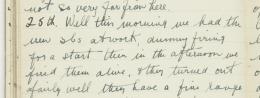 not so very far from here.
25th. Well this morning we had the
new sbs at work, dummy firing
for a start then in the afternoon we
fired them alive, & they turned out
fairly well they have a fine range